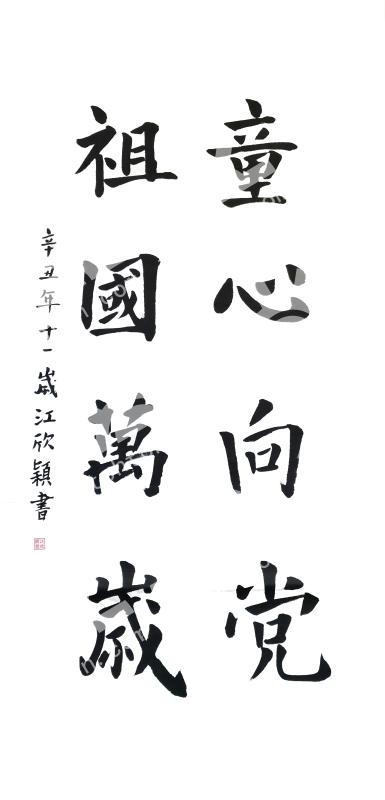 童心向党
祖國萬歲
辛丑年十一歲江欣穎書